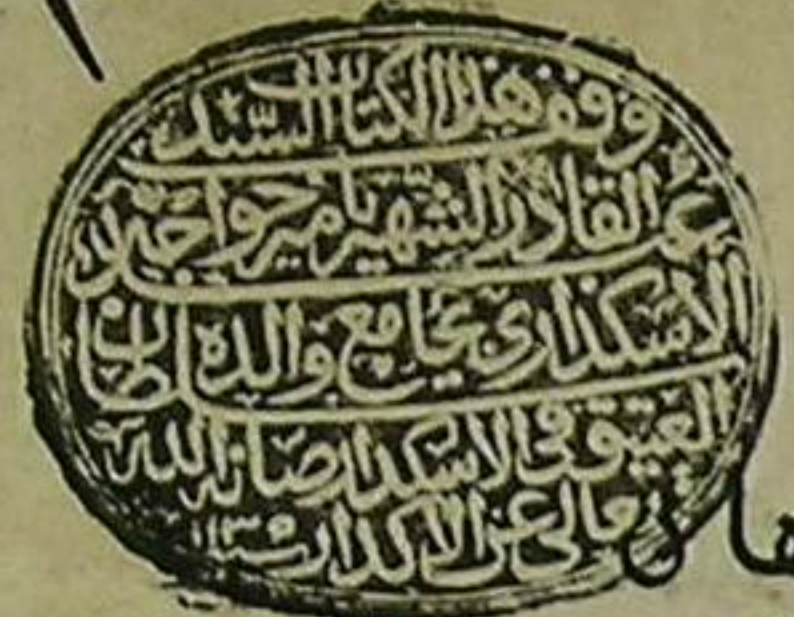 وقف هذا الكتاب السيد
عبد القادر الشهير بامير خواجه
الاسكداري بجامع والده سلطان
العتيق في الاسكدار صانه الله
تعالى عن الاكدار سنة